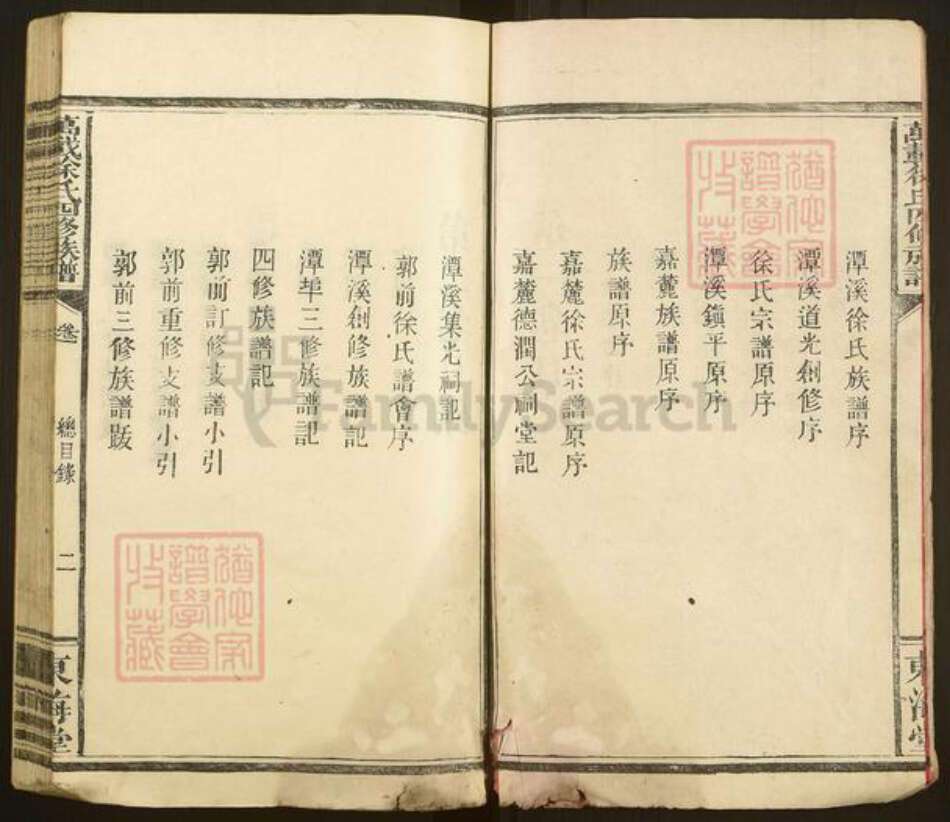 潭溪徐氏族譜序
潭溪道光創修序
徐氏宗譜原序
潭溪鎮平原序
嘉麓族譜原序
族譜原序
嘉麓徐氏宗譜原序
嘉麓德潤公祠堂記
潭溪集光祠記
郭前徐氏譜會序
潭溪創修族譜記
潭埠三修族譜記
四修族譜記
郭前訂修支譜小引
郭前重修支譜小引
郭前三修族譜跋
萬載徐氏四修族譜
總目錄
二
東海堂
萬載徐氏四修族譜
東海堂
猶他家譜學會收藏
猶他家譜學會收藏
FamilySearch